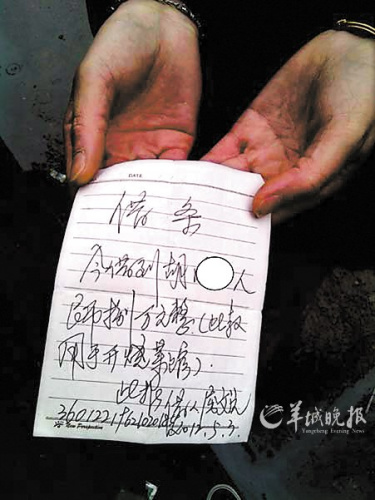 DATE
借条
今借到胡 人
民币 万元整(此款
用于开
此据 借款人
2012.5.3.
New Perspective
羊城晚报
Yangcheng Evening News